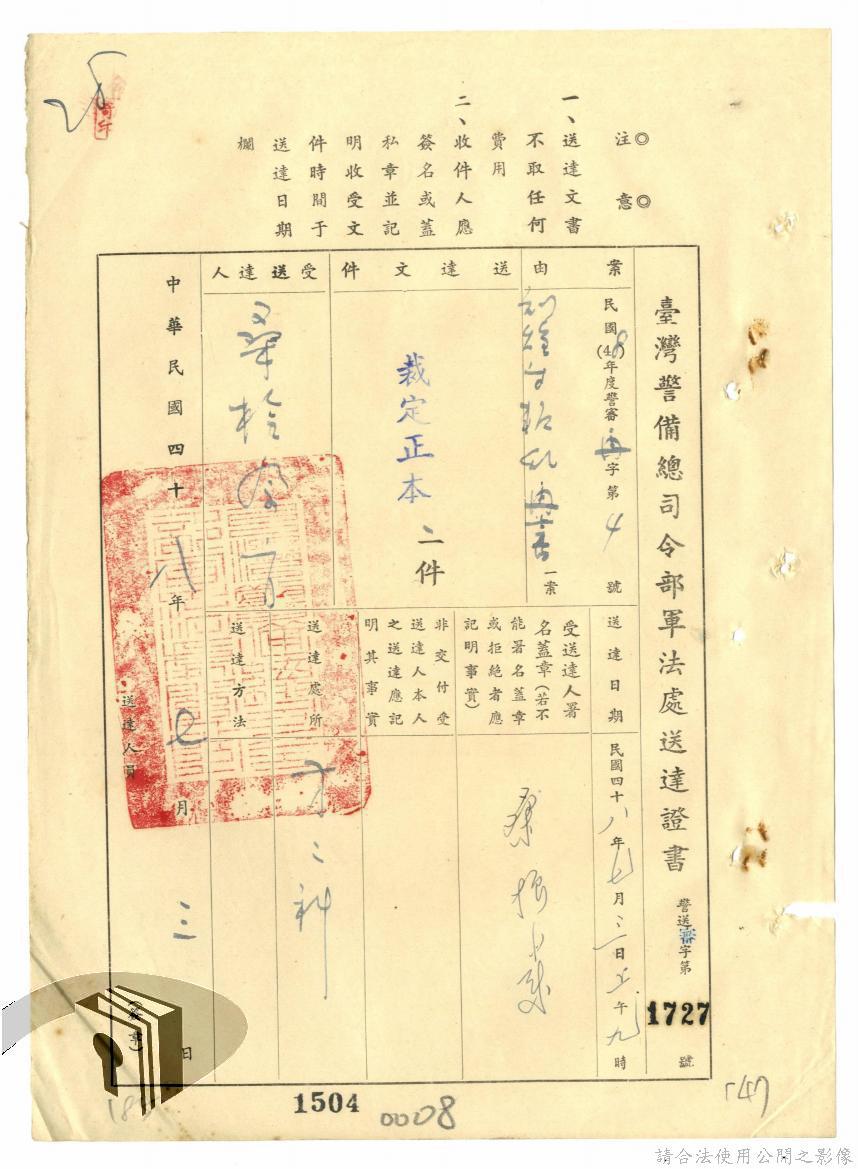 ◎注 意◎
一、送達文書
不取任何
費用
二、收件人應
簽名或蓋
私章並記
明收受文
件時間于
送達日期
欄
臺灣警備總司令部軍法處送達證書
警送審字第
1727
號
案由
民國(48)年度警審再字第4號
一案
送達文件
裁定正本二件
受送達人
送達日期
民國四十八年七月三日上午九時
受送達人署
名蓋章(若不
能署名蓋章
或拒絕者應
記明事實)
非交付受
送達人本人
之送達應記
明其事實
送達處所
送達方法
中華民國四十八年七月三日
送達人員
(簽章)
1504
0008
147
請合法使用公開之影像